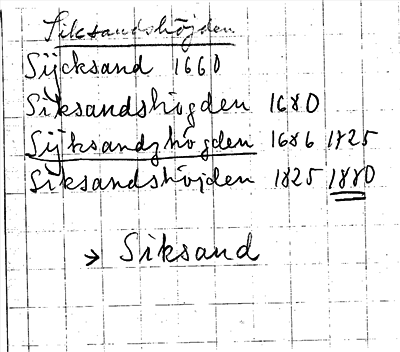 Siksandshöjden
Sijcksand 1660
Siksandshögden 1680
Sijksandzhögden 1686 1825
Siksandshöjden 1825 1880
→ Siksand